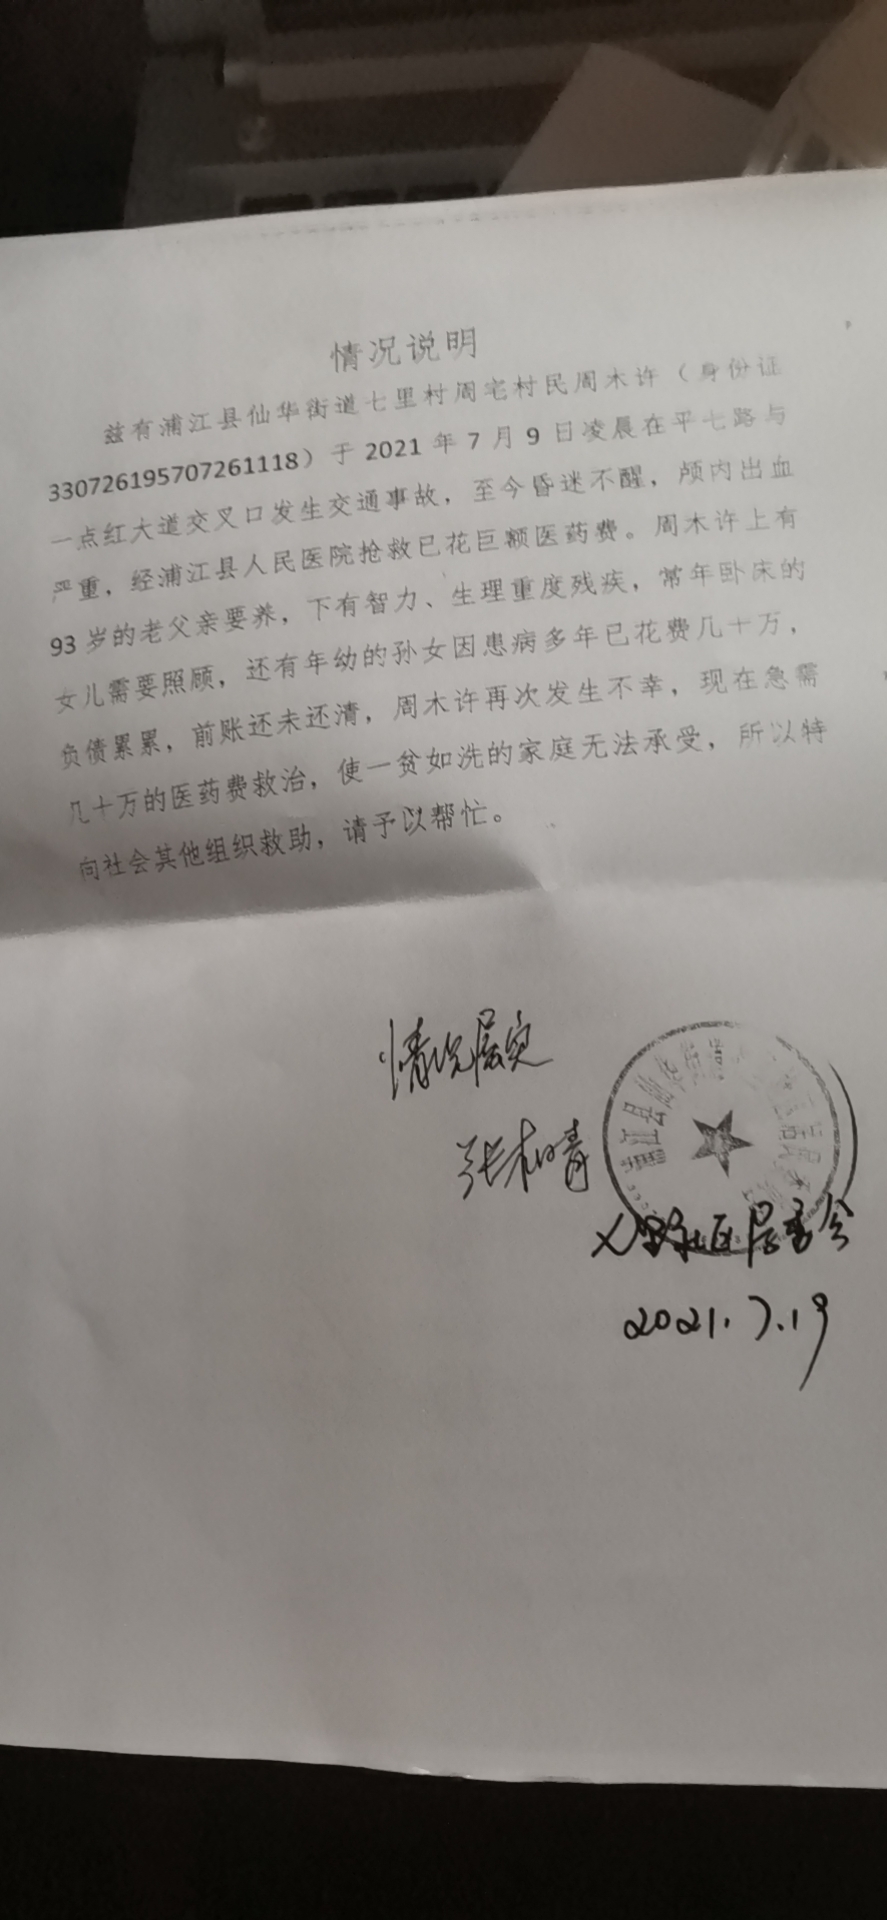 情况说明
兹有浦江县仙华街道七里村周宅村民周木许（身份证
330726195707261118）于 2021 年 7 月 9 日凌晨在平七路与
一点红大道交叉口发生交通事故，至今昏迷不醒，颅内出血
严重，经浦江县人民医院抢救已花巨额医药费。周木许上有
93 岁的老父亲要养，下有智力、生理重度残疾，常年卧床的
女儿需要照顾，还有年幼的孙女因患病多年已花费几十万，
负债累累，前账还未还清，周木许再次发生不幸，现在急需
几十万的医药费救治，使一贫如洗的家庭无法承受，所以特
向社会其他组织救助，请予以帮忙。
情况属实
张
浦江县仙华街道
七里社区居委会
2021.7.19